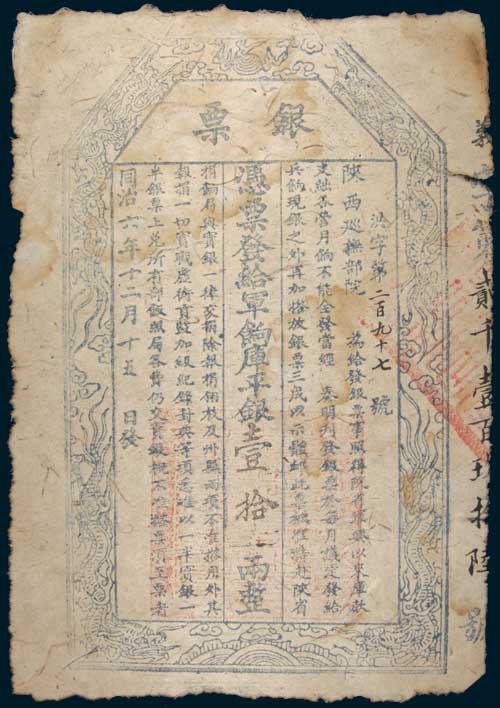 銀票
第貳千壹百玖拾陸號
字第二百九十七號
陝西巡撫部院 為給發銀票事照得陝省軍興以來庫款
支絀各營月餉不能全發當經 奏明刊發銀票於每月議定發給
兵餉現銀之外再加搭放銀票三成以示體卹此票概准持赴陝省
憑票發給軍餉庫平銀壹拾兩整
捐餉局與實銀一律交捐除報捐 及州縣兩項不准搭用外其
報捐一切實職虛銜貢監加級紀錄封典等項悉准以一半實銀一
半銀票上兌所有部飯照局各費仍交實銀概不准搭票須至票者
同治六年十二月十五日發